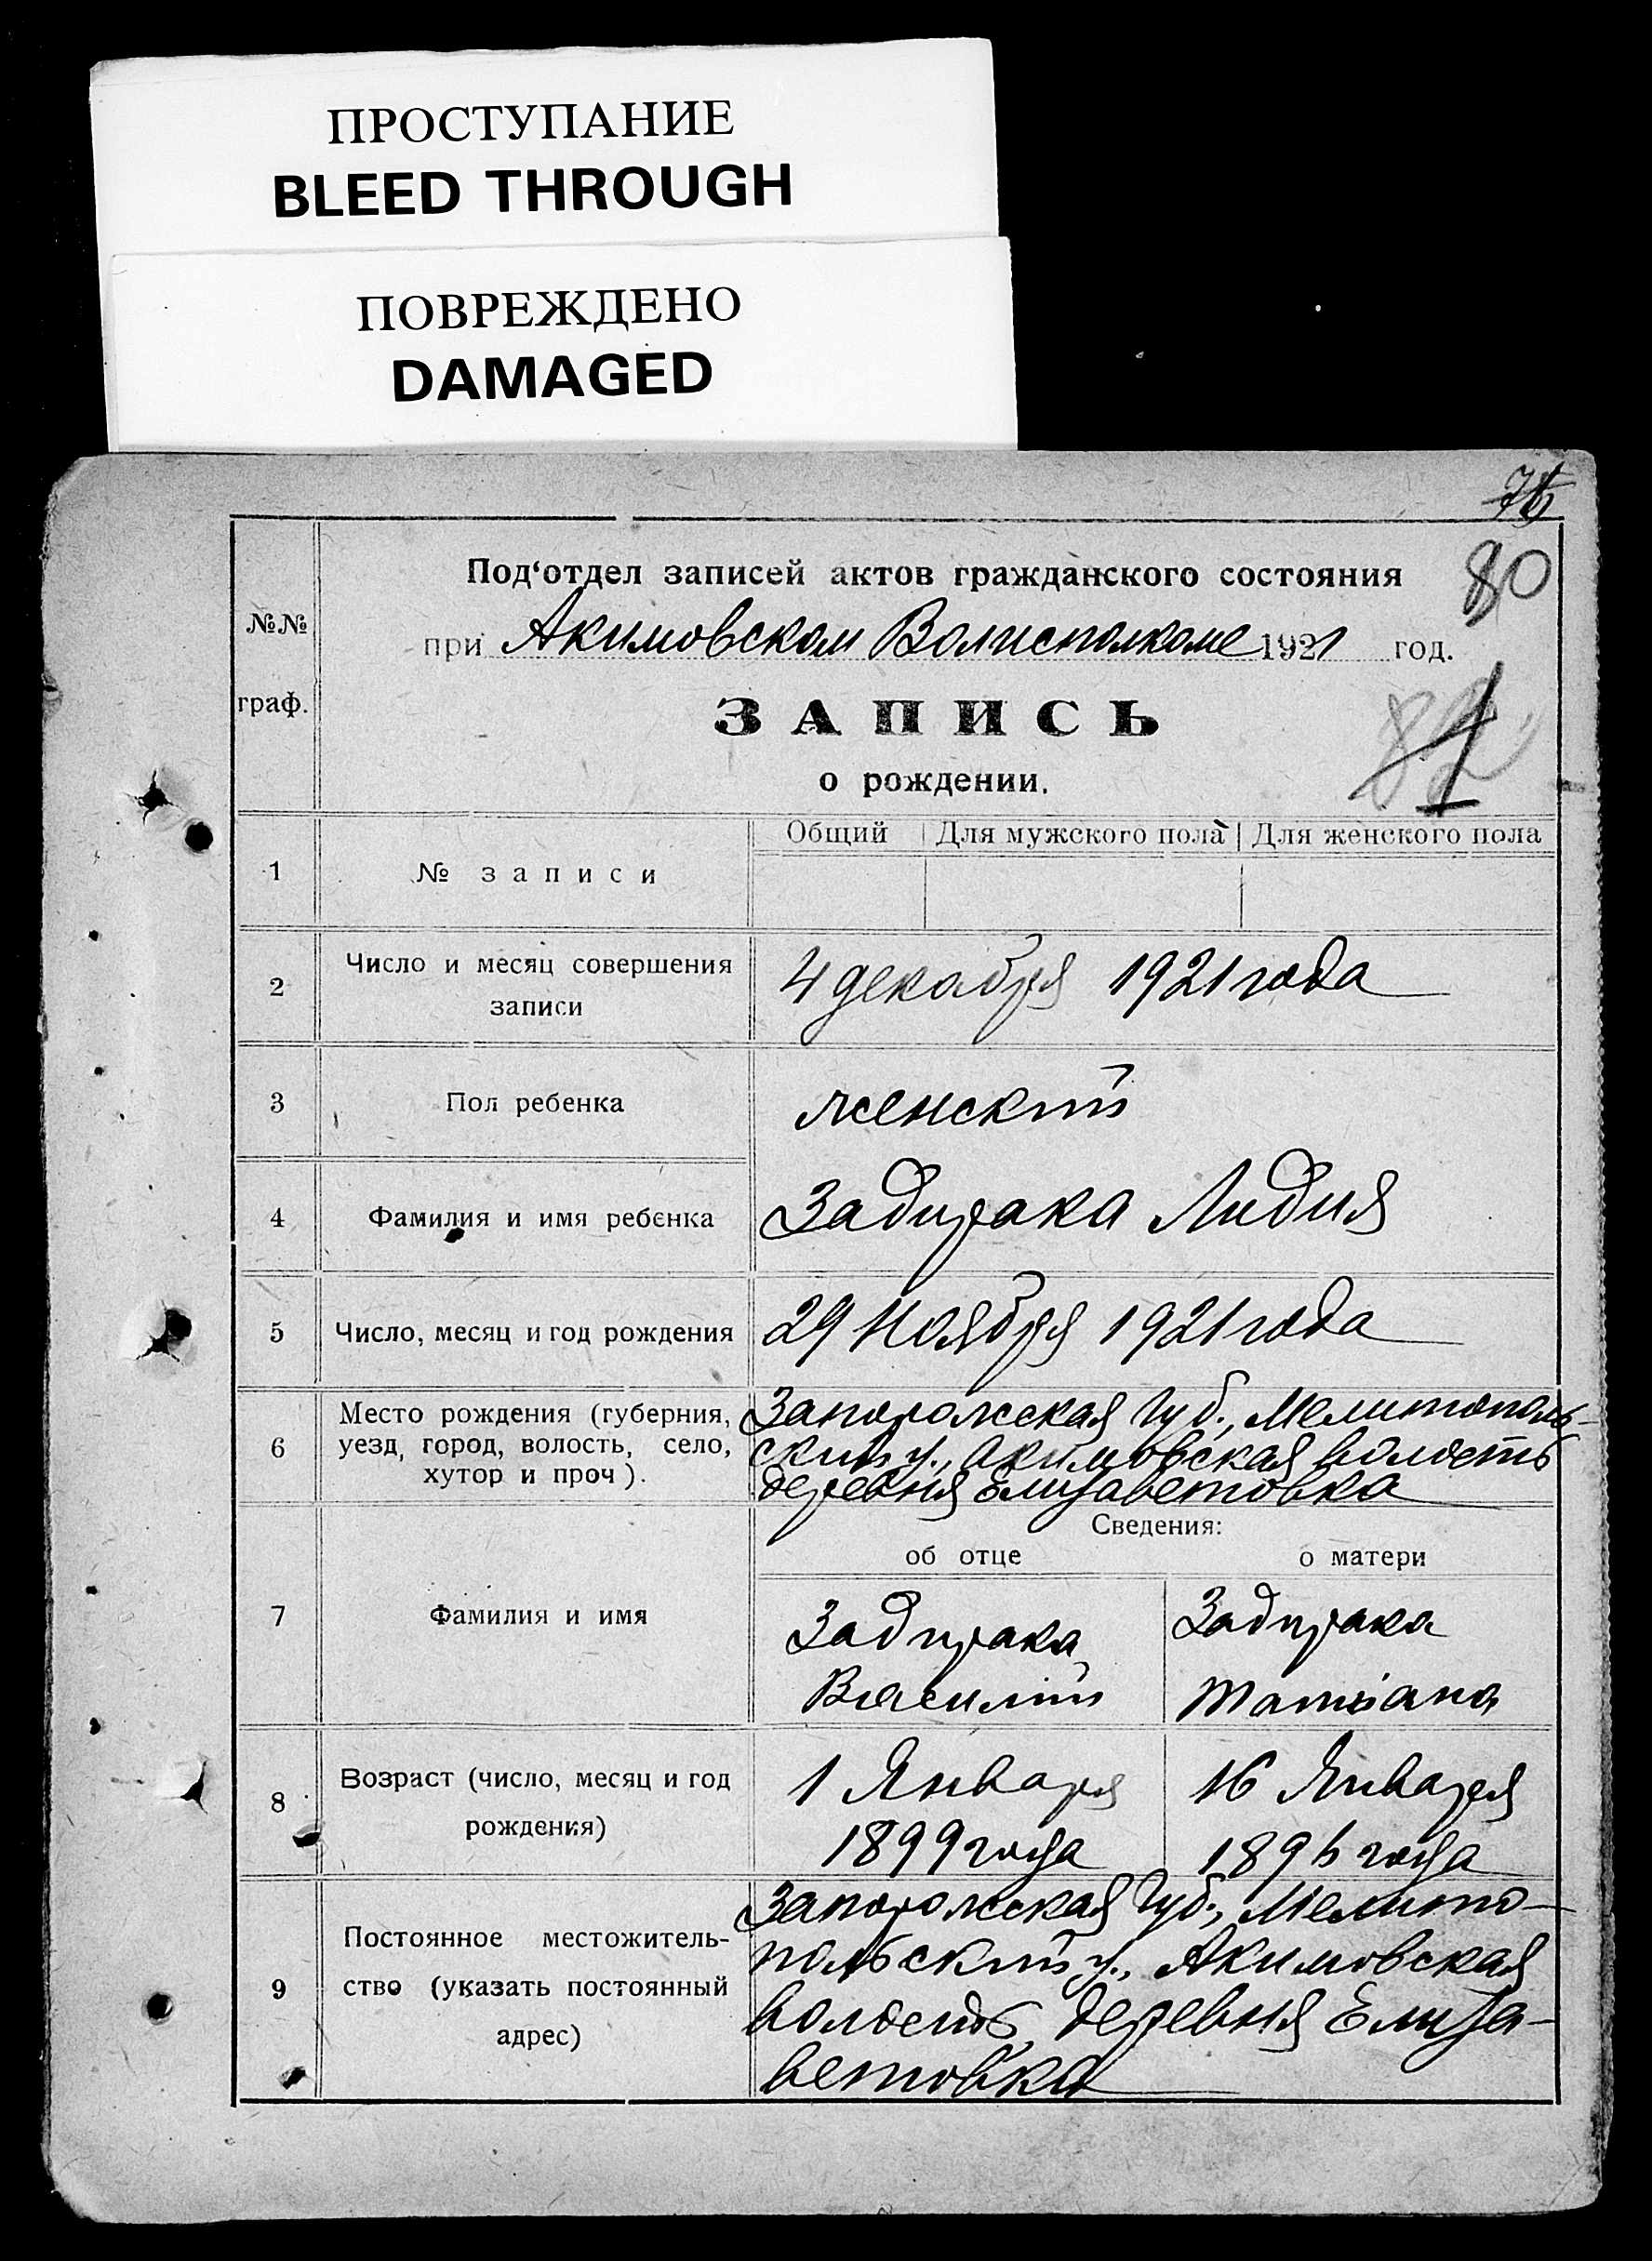 ПРОСТУПАНИЕ
BLEED THROUGH
ПОВРЕЖДЕНО
DAMAGED
80
Под‘отдел записей актов гражданского состояния
№№
при Акимовском Волисполкоме 1921 год.
граф.
ЗАПИСЬ
о рождении.
Общий Для мужского пола Для женского пола
1 № записи
2 Число и месяц совершения
записи
4 декабря 1921 года
3 Пол ребенка женский
4 Фамилия и имя ребенка Задирака Лидия
5 Число, месяц и год рождения 29 Ноября 1921 года
6 Место рождения (губерния,
уезд, город, волость, село,
хутор и проч).
Запорожская Губ., Мелитополь-
ский у., Акимовская волость
деревня Елизаветовка
Сведения:
об отце о матери
7 Фамилия и имя
Задирака Задирака
Василий Татьяна
8 Возраст (число, месяц и год
рождения)
1 Января 16 Января
1899 года 1896 года
9 Постоянное местожитель-
ство (указать постоянный
адрес)
Запорожская Губ., Мелито-
польский у., Акимовская
волость, деревня Елиза-
ветовка